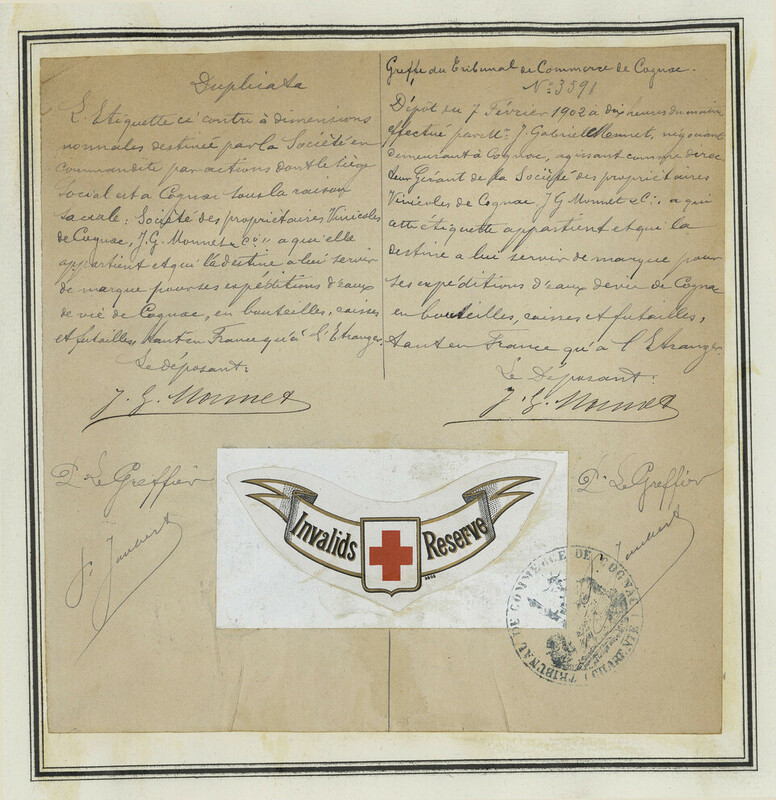 Duplicata
L'Etiquette ci contre à dimensions
normales destinée par la Société en
commandite par actions dont le siège
social est à Cognac sous la raison
sociale: Société des propriétaires Vinicoles
de Cognac, J.G. Monnet & Cie, a qui elle
appartient et qui la destine a lui servir
de marque pour ses expéditions d'eaux
de vie de Cognac, en bouteilles, caisses
et futailles, tant en France qu'à l'Etranger.
Le déposant:
J. G. Monnet
Pr Le Greffier
Joubert
Greffe du Tribunal de Commerce de Cognac.
No 3391
Dépôt du 7 Février 1902 à dix heures du matin
effectué par Mr. J. Gabriel Monnet, négociant
demeurant à Cognac, agissant comme direc
teur Gérant de la Société des propriétaires
Vinicoles de Cognac J G Monnet & Cie, a qui
cette étiquette appartient et qui la
destine a lui servir de marque pour
ses expéditions d'eaux de vie de Cognac
en bouteilles, caisses et futailles,
tant en France qu'à l'Etranger.
Le Déposant:
J. G. Monnet
Pr Le Greffier
Joubert
Invalids Reserve
TRIBUNAL DE COMMERCE DE COGNAC